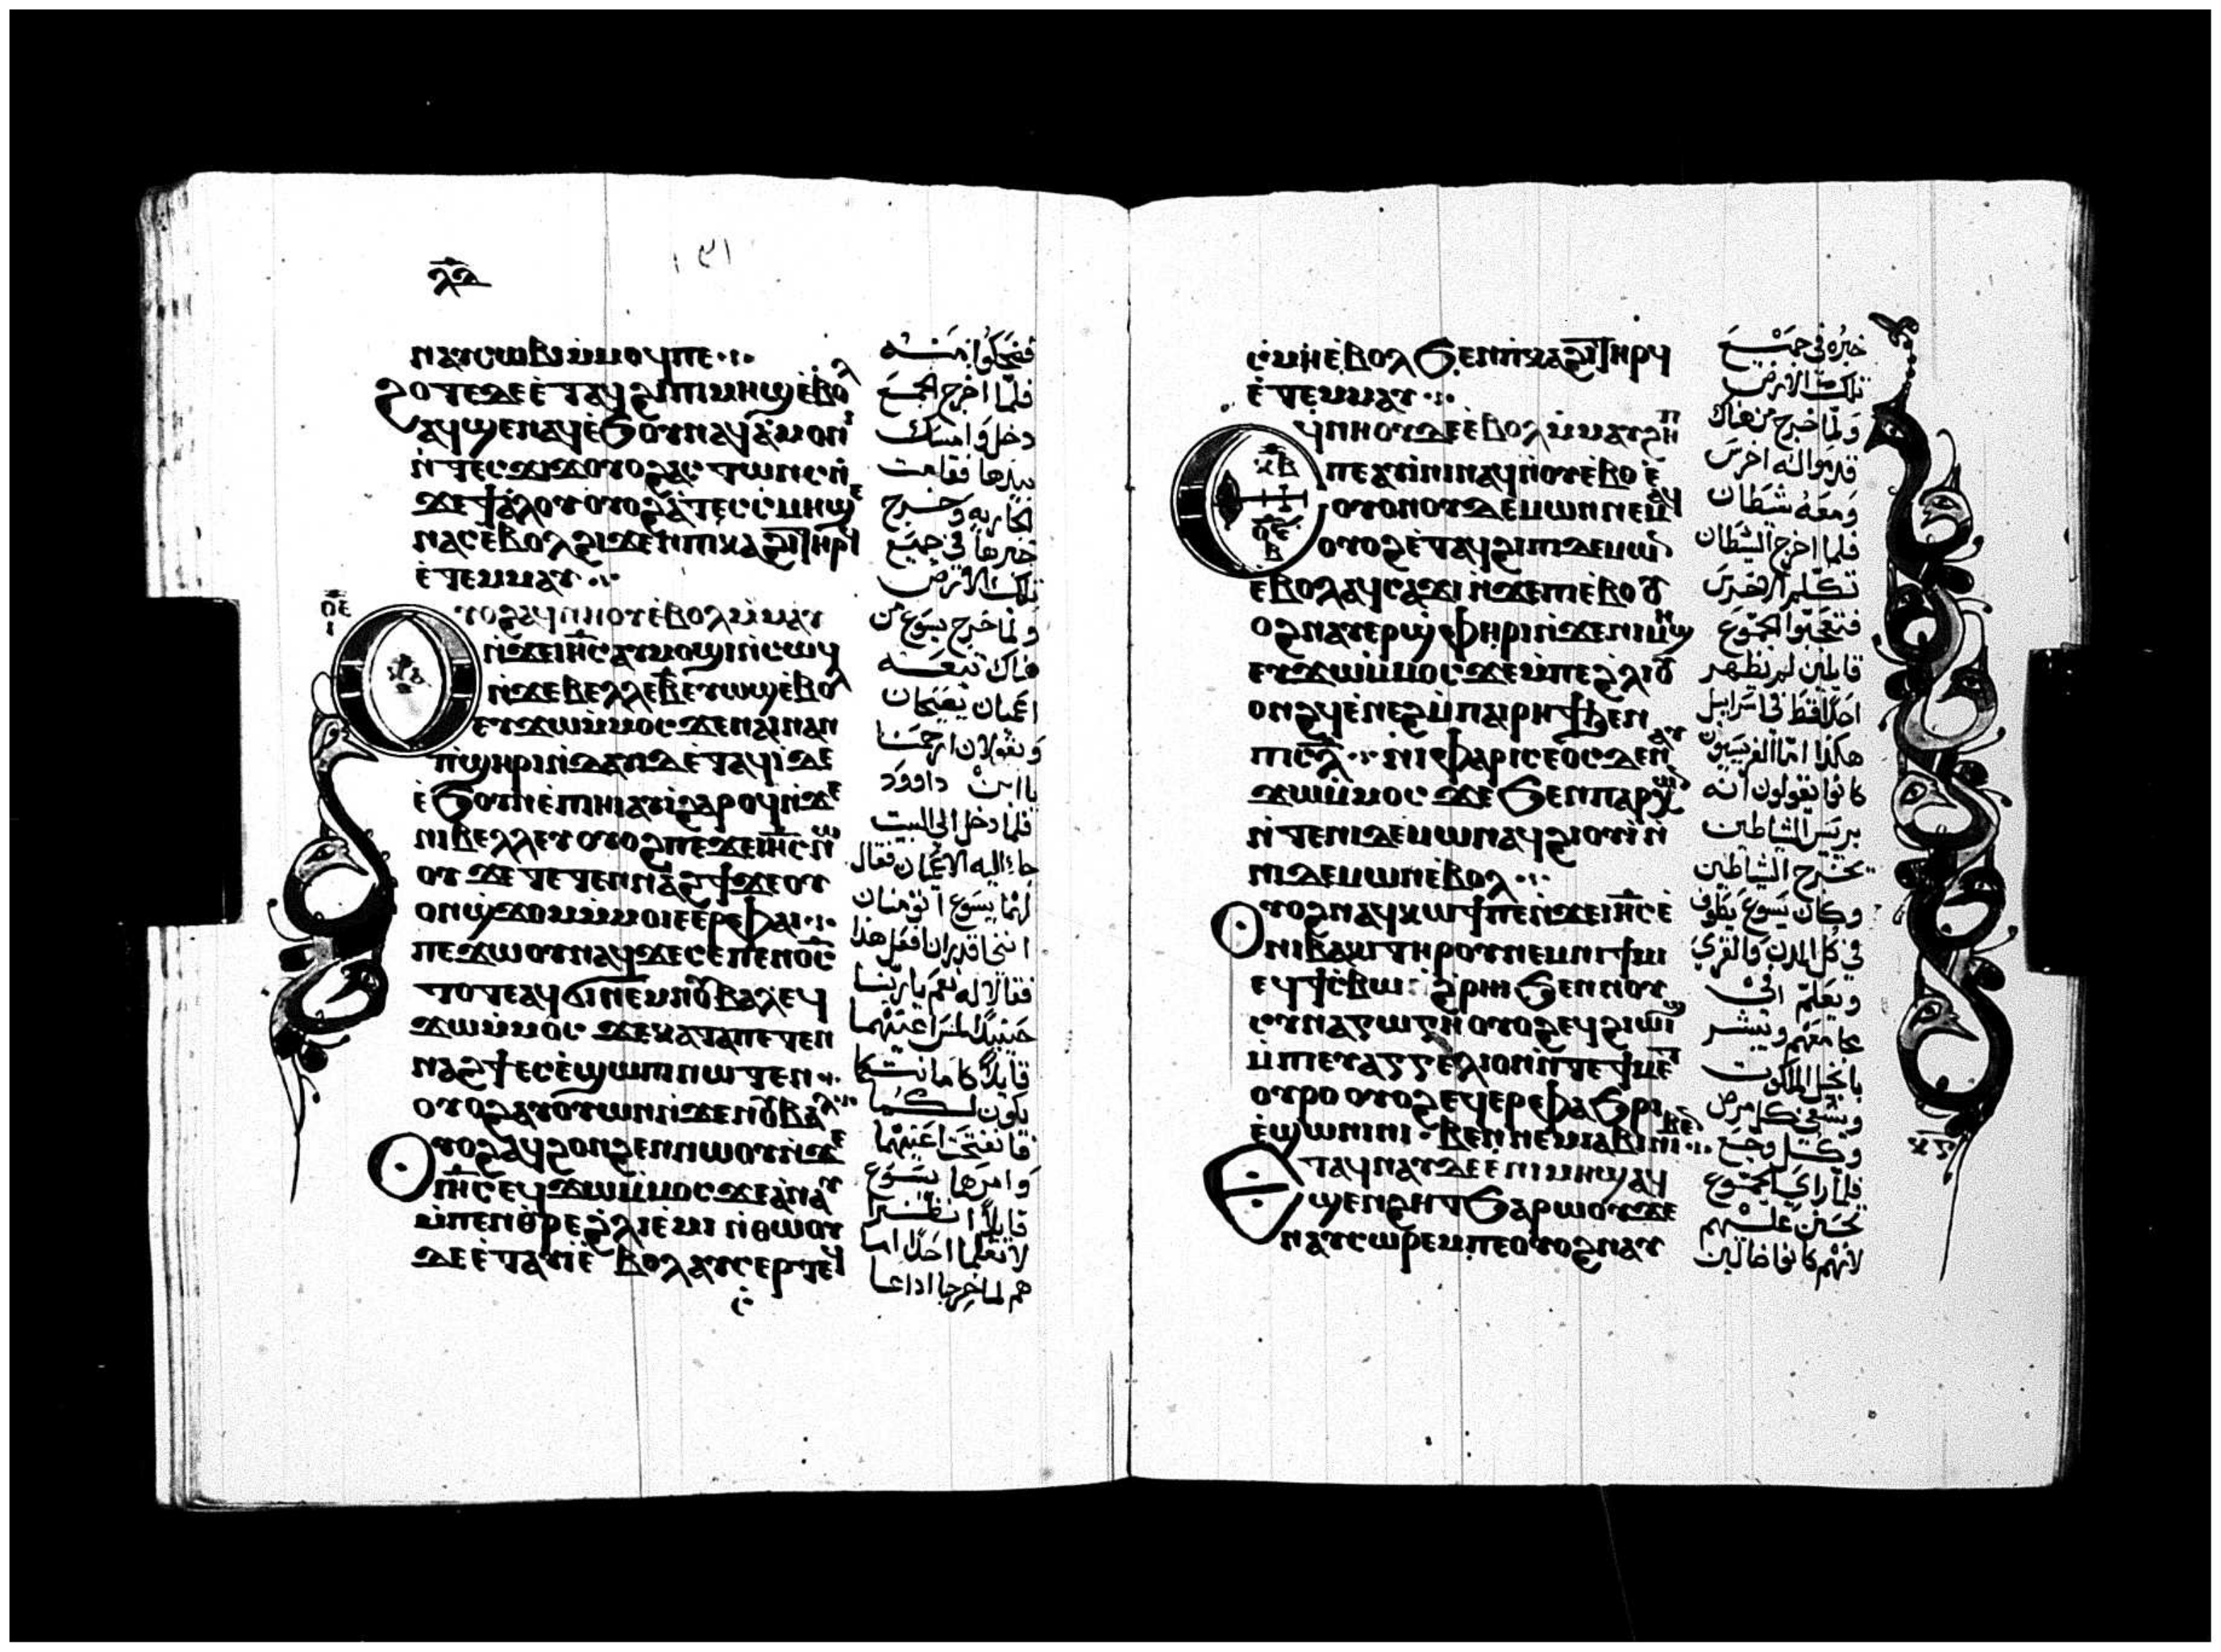 ⲗⲁ
١٩١
ⲛⲁⲩⲥⲱⲃⲓ ⲙ̇ⲙⲟϥ ⲡⲉ
ϩⲟⲧⲉ ⲇⲉ ⲉ̇ⲧⲁϥϩⲓ ⲡⲓⲙⲏϣ ⲉ̇ⲃⲟⲗ
ⲁϥϣⲉⲛⲁϥ ⲉ̇ϧⲟⲩⲛ ⲁϥⲁ̇ⲙⲟⲛⲓ
ⲛ̇ⲧⲉⲥϫⲓϫ ⲟⲩⲟϩ ⲁⲥⲧⲱⲛⲥ ⲛ̇
ϫⲉ ϯⲁ̇ⲗⲟⲩ ⲟⲩⲟϩ ⲁ̇ ⲧⲉⲥⲥ̇ⲙⲏ ϣⲉ
ⲛⲁⲥ ⲉ̇ⲃⲟⲗ ϩⲓϫⲉⲛ ⲡⲓⲕⲁϩⲓ ⲧⲏⲣϥ
ⲉ̇ⲧⲉⲙⲙⲁⲩ
ⲟⲩⲟϩ ⲁϥⲛⲏⲟⲩ ⲉ̇ⲃⲟⲗ ⲙ̇ⲙⲁⲩ
ⲛ̇ϫⲉ ⲓⲏⲥ ⲁⲩⲙⲟϣⲓ ⲛ̇ⲥⲱϥ
ⲛ̇ϫⲉ ⲃⲉⲗⲗⲉ ⲃ̅ ⲉⲩⲱϣ ⲉ̇ⲃⲟⲗ
ⲉⲩϫⲱ ⲙ̇ⲙⲟⲥ ϫⲉ ⲛⲁⲓ ⲛⲁⲛ
ⲡ̇ϣⲏⲣⲓ ⲛ̇ⲇⲁⲇ ⲉ̇ⲧⲁϥⲓ̇ ⲇⲉ
ⲉ̇ϧⲟⲩⲛ ⲉ̇ⲡⲓⲏⲓ ⲁⲩⲓ̇ ϩⲁⲣⲟϥ ⲛ̇ϫⲉ
ⲛⲓⲃⲉⲗⲗⲉⲩ ⲟⲩⲟϩ ⲡⲉϫⲉ ⲓⲏⲥ ⲛⲱ
ⲟⲩ ϫⲉ ⲧⲉⲧⲉⲛⲛⲁϩϯ ϫⲉ ⲟⲩ
ⲟⲛϣ̇ϫⲟⲙ ⲙ̇ⲙⲟⲓ ⲉⲉⲣⲉ ⲫⲁⲓ
ⲡⲉϫⲱⲟⲩ ⲛⲁϥ ϫⲉ ⲥⲉ ⲡⲉⲛⲟ̅ⲥ̅
ⲧⲟⲧⲉ ⲁϥϭⲓ ⲛⲉⲙ ⲛⲟⲩⲃⲁⲗ ⲉϥ
ϫⲱ ⲙ̇ⲙⲟⲥ ϫⲉ ⲕⲁⲧⲁ ⲡⲉⲧⲉⲛ
ⲛⲁϩϯ ⲉⲥⲉ̇ϣⲱⲡⲓ ⲛⲱⲧⲉⲛ
ⲟⲩⲟϩ ⲁⲩⲟⲩⲱⲛ ⲛ̇ϫⲉ ⲛⲟⲩⲃⲁⲗ
ⲟⲩⲟϩ ⲁϥϩⲟⲛϩⲉⲛ ⲛⲱⲟⲩ ⲛ̇ϫⲉ
ⲓⲏⲥ ⲉϥϫⲱ ⲙ̇ⲙⲟⲥ ϫⲉ ⲁ̇ⲛⲁⲩ
ⲙ̇ⲡⲉⲛⲑ̇ⲣⲉ ϩ̇ⲗⲓ ⲉ̇ⲙⲓ ⲛ̇ⲑⲱⲟⲩ
ⲇⲉ ⲉ̇ⲧⲁⲩⲓ̇ ⲉ̇ⲃⲟⲗ ⲁⲩⲥⲉⲣ ⲡⲉϥ
ⲥ̇
فضحكوا منه
فلما اخرج الجمع
دخل وامسك
بيدها فقامت
الجاريه وخرج
خبرها في جميع
تلك الارض
ولما خرج يسوع من
هناك تبعه
اعميان يصيحان
ويقولان ارحمنا
يا ابن داوود
فلما دخل الى البيت
جاء اليه الاعميان فقال
لهما يسوع اتومنان
انني اقدر ان افعل هذا
فقالا له نعم يا ربنا
حينيذ لمس اعينهما
قايلا كامانتكما
يكون لكما
فانفتحت اعينهما
وامرهما يسوع
قايلا انظرا
لا تعلما احدا اما
هم لما خرجا اذاعا
ⲥ̇ⲙⲏ ⲉ̇ⲃⲟⲗ ϧⲉⲛ ⲡⲓⲕⲁϩⲓ ⲧⲏⲣϥ
ⲉ̇ⲧⲉⲙⲙⲁⲩ
ⲉϥⲛⲏⲟⲩ ⲇⲉ ⲉ̇ⲃⲟⲗ ⲙ̇ⲙⲁⲩ ϩⲏⲡ
ⲡⲉ ⲁⲩⲓ̇ⲛⲓ ⲛⲁϥ ⲛ̇ⲟⲩⲉⲃⲟ ⲉ̇
ⲟⲩⲟⲛ ⲟⲩⲇⲉⲙⲱⲛ ⲛⲉⲙⲁϥ
ⲟⲩⲟϩ ⲉ̇ⲧⲁϥϩⲓ ⲡⲓⲇⲉⲙⲱⲛ
ⲉⲃⲟⲗ ⲁϥⲥⲁϫⲓ ⲛ̇ϫⲉ ⲡⲓⲉ̇ⲃⲟ ⲟⲩ
ⲟϩ ⲛⲁⲩⲉⲣϣ̇ⲫⲏⲣⲓ ⲛ̇ϫⲉ ⲛⲓⲙⲏϣ
ⲉⲩϫⲱ ⲙ̇ⲙⲟⲥ ϫⲉ ⲙ̇ⲡⲉ ϩ̇ⲗⲓ ⲟⲩ
ⲟⲛϩϥ ⲉ̇ⲛⲉϩ ⲙ̇ⲡⲁⲓⲣⲏϯ ϧⲉⲛ
ⲡⲓⲥ̅ⲗ̅ ⲛⲓⲫⲁⲣⲓⲥⲉⲟⲥ ⲇⲉ ⲛⲁⲩ
ϫⲱ ⲙ̇ⲙⲟⲥ ϫⲉ ϧⲉⲛ ⲡⲁⲣⲭⲱⲛ
ⲛ̇ⲧⲉ ⲛⲓⲇⲉⲙⲱⲛ ⲁϥϩⲓⲟⲩⲓ̇ ⲛ̇
ⲛⲓⲇⲉⲙⲱⲛ ⲉ̇ⲃⲟⲗ
ⲟⲩⲟϩ ⲛⲁϥⲕⲱϯ ⲡⲉ ⲛ̇ϫⲉ ⲓⲏⲥ ⲉ̇
ⲛⲓⲃⲁⲕⲓ ⲧⲏⲣⲟⲩ ⲛⲉⲙ ⲛⲓϯⲙⲓ
ⲉϥϯⲥ̇ⲃⲱ ⲛ̇ϩ̇ⲣⲏⲓ ϧⲉⲛ ⲛⲟⲩ
ⲥⲩⲛⲁⲅⲱⲅⲏ ⲟⲩⲟϩ ⲉϥϩⲓⲱⲓϣ
ⲙ̇ⲡⲓⲉⲩⲁⲅⲅⲉⲗⲓⲟⲛ ⲛ̇ⲧⲉ ϯⲙⲉⲧ
ⲟⲩⲣⲟ ⲟⲩⲟϩ ⲉϥⲉⲣⲫⲁϧⲣⲓ
ⲉ̇ϣⲱⲛⲓ ⲛⲓⲃⲉⲛ ⲛⲉⲙ ⲓⲁⲃⲓ ⲛⲓⲃⲉⲛ
ⲉⲧⲁϥⲛⲁⲩ ⲇⲉ ⲉ̇ⲛⲓⲙⲏϣ ⲁϥ
ϣⲉⲛϩⲏⲧ ϧⲁⲣⲱⲟⲩ ϫⲉ
ⲛⲁⲩⲥⲱⲣⲉⲙ ⲡⲉ ⲟⲩⲟϩ ⲛⲁⲩ
خبره في جميع
تلك الارض
ولما خرج من هناك
قدموا اليه اخرس
ومعه شيطان
فلما اخرج الشيطان
تكلم الاخرس
فتعجبوا الجموع
قايلين لم يظهر
احد قط في اسراييل
هكذا اما الفريسيون
كانوا يقولون انه
بريس الشياطين
يخرج الشياطين
وكان يسوع يطوف
في كل المدن والقري
ويعلم في
مجامعهم ويبشر
بانجيل الملكوت
ويشفي كل مرض
وكل وجع
فلما راي الجموع
تحنن عليهم
لانهم كانوا ضالين